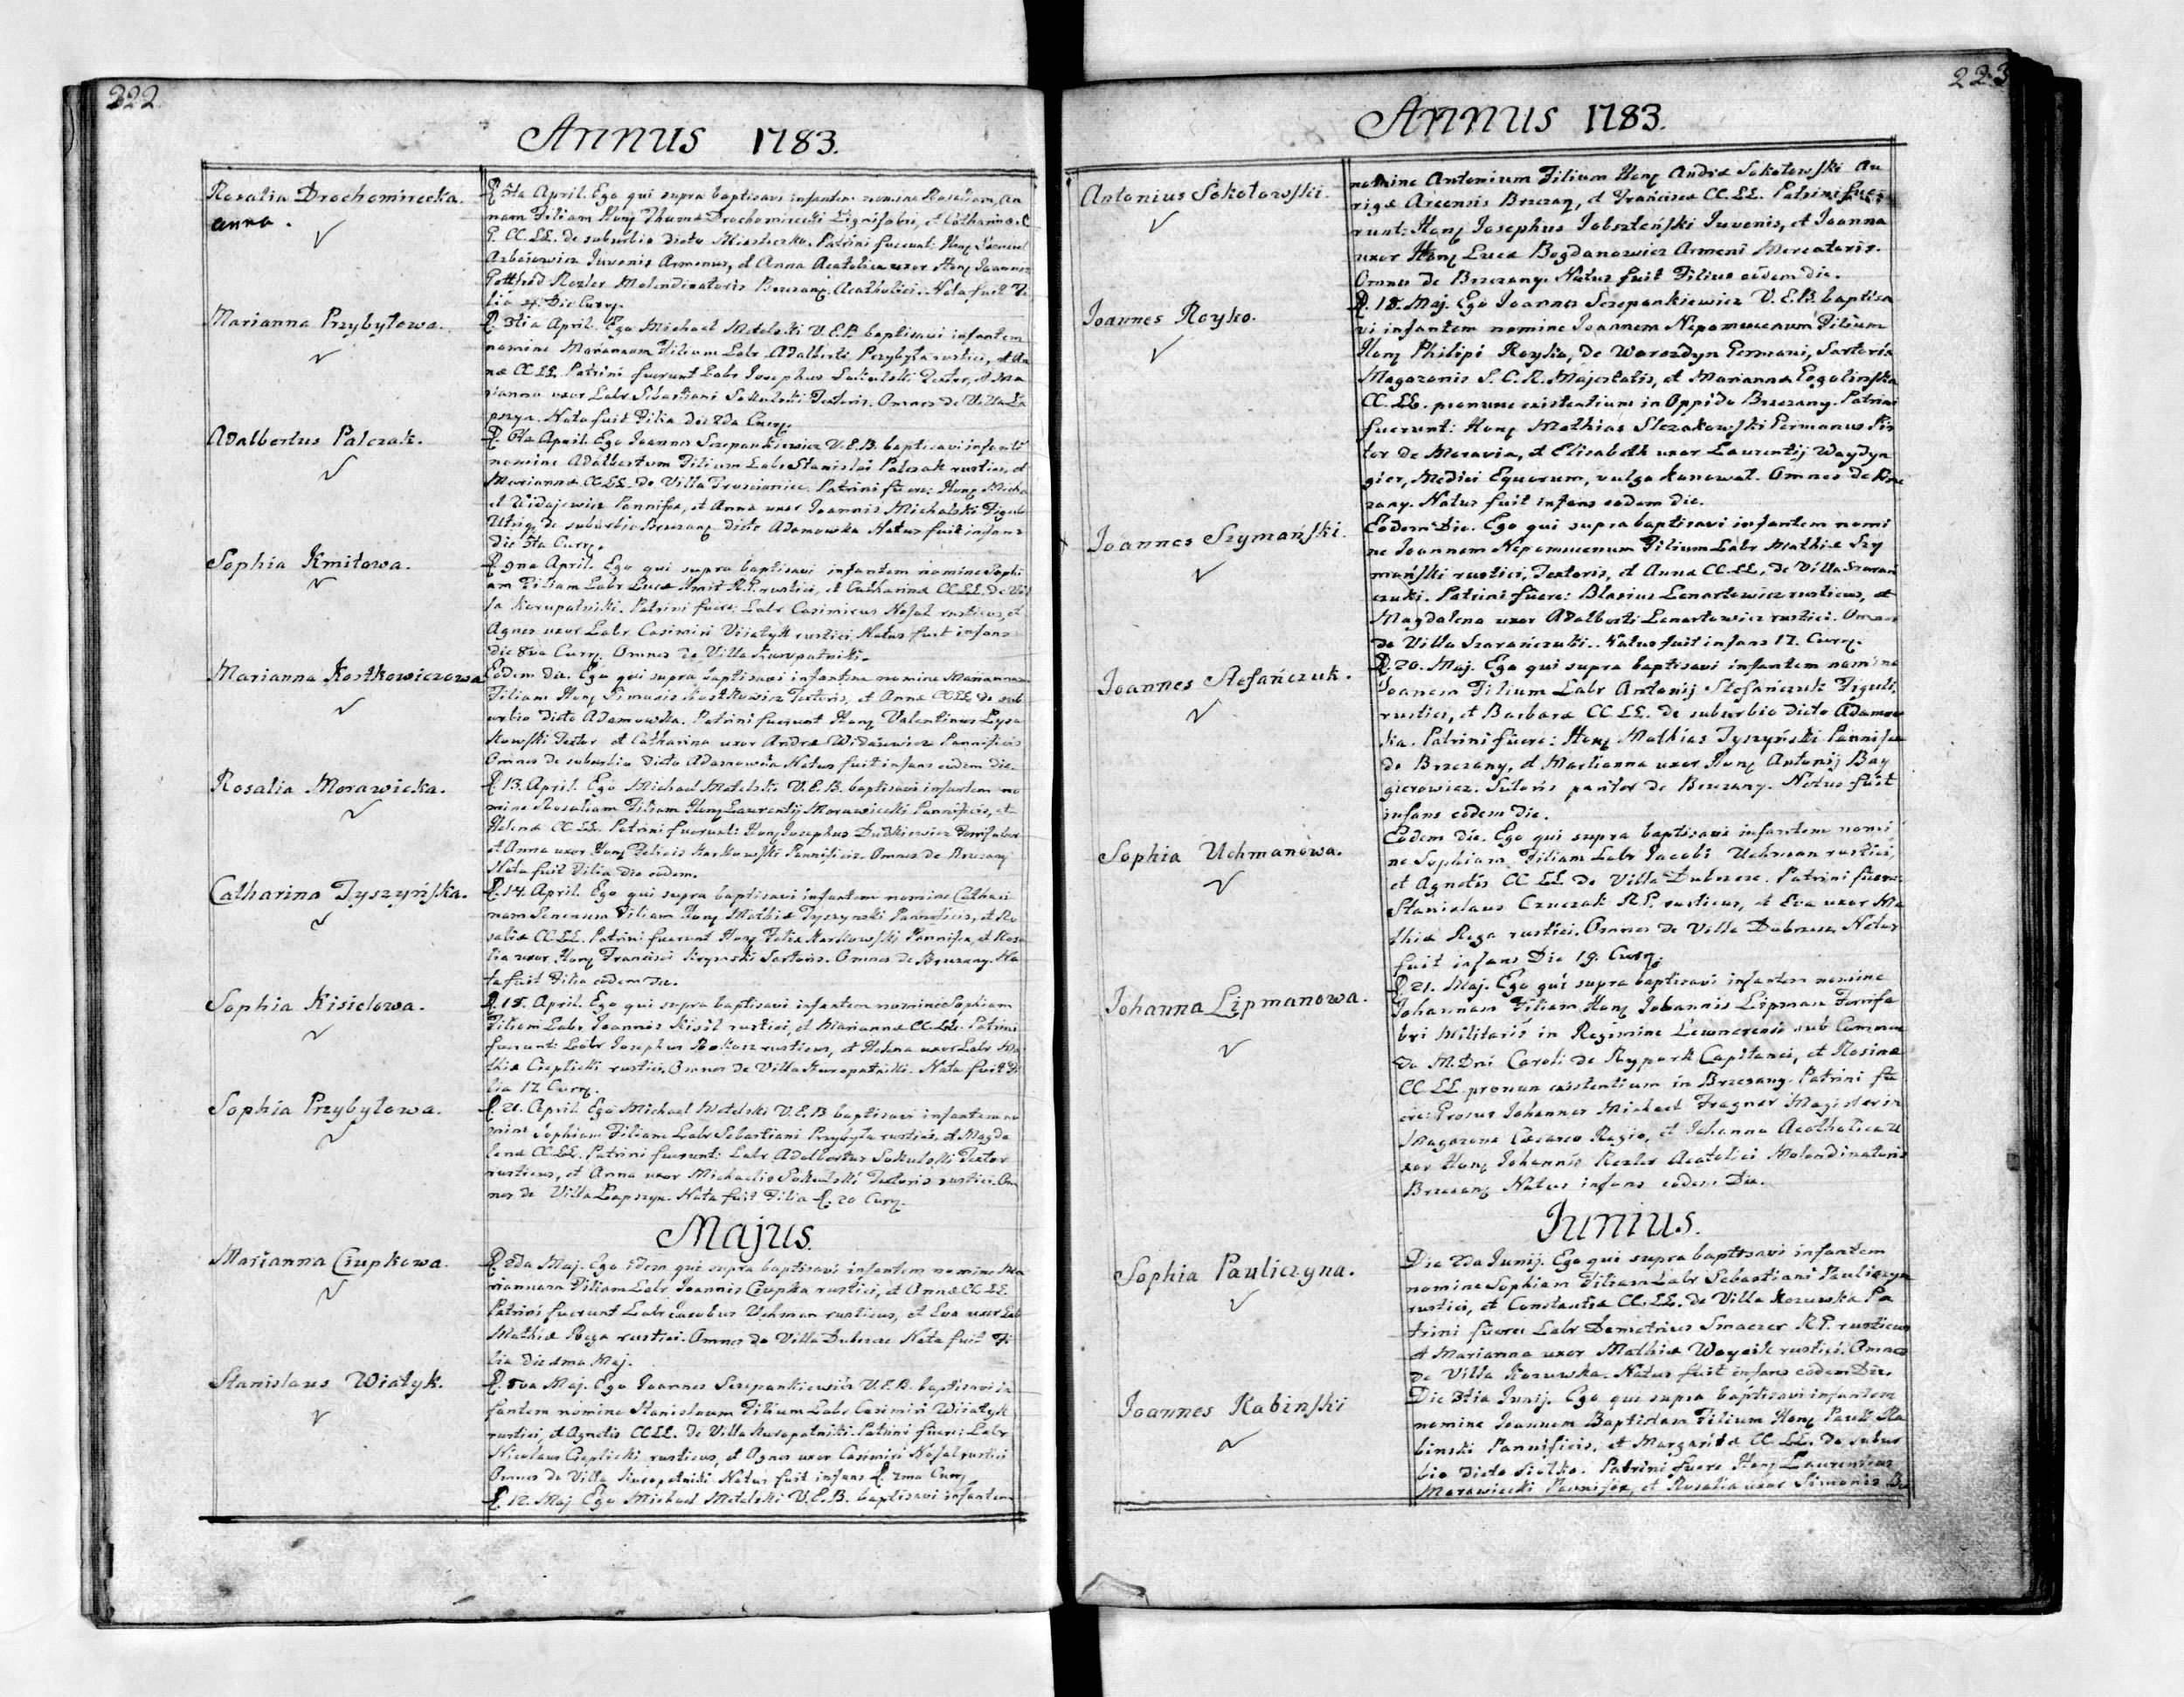 222.
Annus 1783.
Rosalia Drochomirecka.
Anna.
D. 5ta April. Ego qui supra baptisavi infantem nomine Rosaliam, An
nam Filiam Hon. Thoma Drochomirecki Lignifabri, et Catharina
CC.LL. de suburbio dicto Miasteczko. Patrini fuerunt: Hon.
Juvenis Armenus, et Anna Acatolica uxor Hon. Joannis
Gottfrid Kezler Molendinatoris Brzezan. Acatholici. Nata fuit Fi
lia 4. Die Curr.
Marianna Przybyłowa.
D. 3tia April. Ego Michael Metelski V.E.B. baptisavi infantem
nomine Mariannam Filiam Labr. Adalberti Przybyła rustici, et An
na CC.LL. Patrini fuerunt Labr. Josephus Sokulski Textor, et Ma
rianna uxor Labr. Sebastiani Sokulski Textoris. Omnes de Villa Ła
pszyn. Nata fuit Filia die 2da Curr.
Adalbertus Palczak.
D. 6ta April. Ego Joannes Szczepankiewicz V.E.B. baptisavi infantē
nomine Adalbertum Filium Labr. Stanislai Palczak rustici, et
Marianna CC.LL. de Villa Proscianiec. Patrini fuere: Hon. Micha
el Widajewicz Pannifex, et Anna uxor Joannis Michalski Figuli
Utriq. de suburbio Brzezan. dicto Adamowka. Natus fuit infans
die 5ta Curr.
Sophia Kmitowa.
D. 9na April. Ego qui supra baptisavi infantem nomine Sophi
am Filiam Labr. Luca Kmit R.P. rustici, et Catharina CC.LL. de Vil
la Kuropatniki. Patrini fuere: Labr. Casimirus Nosal rusticus, et
Agnes uxor Labr. Casimiri Wiiatyk rustici. Natus fuit infans
die 8va Curr. Omnes de Villa Kuropatniki.
Marianna Kostkowiczowa
Eodem die. Ego qui supra baptisavi infantem nomine Mariannam
Filiam Hon. Simonis Kostkowicz Textoris, et Anna CC.LL. de sub
urbio dicto Adamowka. Patrini fuerunt Hon. Valentinus Lysa
kowski Textor et Catharina uxor Andrea Widaiewicz Pannificis
Omnes de suburbio dicto Adamowka. Natus fuit infans eodem die.
Rosalia Morawicka.
D. 13. April. Ego Michael Metelski V.E.B. baptisavi infantem no
mine Rosaliam Filiam Hon. Laurentij Morawiecki Pannificis, et
Helena CC.LL. Patrini fuerunt: Hon. Josephus Dudkiewicz Ferrifaber
et Anna uxor Hon. Felicis Karkowski Pannificis. Omnes de Brzezany
Nata fuit Filia die eodem.
Catharina Tyszyńska.
D. 14. April. Ego qui supra baptisavi infantem nomine Cathari
nam Senensem Filiam Hon. Mathia Tyszynski Pannificis, et Ro
salia CC.LL. Patrini fuerunt Hon. Felix Karkowski Pannifex, et Rosa
lia uxor Hon. Francisci Krynski Sartoris. Omnes de Brzezany. Na
ta fuit Filia eodem die.
Sophia Kisielowa.
D. 18. April. Ego qui supra baptisavi infantem nomine Sophiam
Filiam Labr. Joannis Kisil rustici, et Marianna CC.LL. Patrini
fuerunt: Labr. Josephus Bokosz rusticus, et Helena uxor Labr. Ma
thia Cieplicki rustici. Omnes de Villa Kuropatniki. Nata fuit Fi
lia 17. Curr.
Sophia Przybyłowa.
D. 21. April. Ego Michael Metelski V.E.B. baptisavi infantem no
mine Sophiam Filiam Labr. Sebastiani Przybyła rustici, et Magda
lena CC.LL. Patrini fuerunt: Labr. Adalbertus Sokulski Textor
rusticus, et Anna uxor Michaelis Sokulski Textoris rustici. Om
nes de Villa Łapszyn. Nata fuit Filia D. 20 Curr.
Majus.
Marianna Czupkowa.
D. 2da Maj. Ego idem qui supra baptisavi infantem nomine Ma
riannam Filiam Labr. Joannis Czupka rustici, et Anna CC.LL.
Patrini fuerunt Labr. Jacobus Uchman rusticus, et Eva uxor Labr
Mathia Rega rustici. Omnes de Villa Dubszcze Nata fuit Fi
lia die 1ma Maj.
Stanislaus Wiatyk.
D. 8va Maj. Ego Joannes Szczepankiewicz V.E.B. baptisavi in
fantem nomine Stanislaum Filium Labr. Casimiri Wiiatyk
rustici, et Agnetis CC.LL. de Villa Kuropatniki. Patrini fuere: Labr
Nicolaus Cieplicki rusticus, et Agnes uxor Casimiri Nosal rustici
Omnes de Villa Kuropatniki Natus fuit infans D. 7ma Curr.
D. 12. Maj. Ego Michael Metelski V.E.B. baptisavi infantem
223
Annus 1783.
Antonius Sokołowski.
nomine Antonium Filium Hon. Andrea Sokołowski Au
riga Arcensis Brzezan, et Francisca CC.LL. Patrini fue
runt: Hon. Josephus Jabszteński Juvenis, et Joanna
uxor Hon. Luca Bogdanowicz Armeni Mercatoris.
Omnes de Brzezany. Natus fuit Filius eodem die.
Joannes Royko.
D. 18. Maj. Ego Joannes Szczepankiewicz V.E.B. baptisa
vi infantem nomine Joannem Nepomucenum Filium
Hon. Philipi Royko, de Warozdyn Germani, Sartoris
Magazonis S.C.R. Majestatis, et Marianna Gogolinska
CC.LL. pronunc existentium in Oppido Brzezany. Patrini
fuerunt: Hon. Mathias Slezakowski Germanus Pis
tor de Moravia, et Elisabeth uxor Laurentij Waydyn
gier, Medici Equorum, vulgo Konował. Omnes de Brze
zany. Natus fuit infans eodem die.
Joannes Szymański.
Eodem Die. Ego qui supra baptisavi infantem nomi
ne Joannem Nepomucenum Filium Labr. Mathia Szy
mański rustici, Textoris, et Anna CC.LL. de Villa Szarań
czuki. Patrini fuere: Blasius Lenartowicz rusticus, et
Magdalena uxor Adalberti Lenartowicz rustici. Omnes
de Villa Szarańczuki. Natus fuit infans 17. Curr.
Joannes Stefańczuk.
D. 20. Maj. Ego qui supra baptisavi infantem nomine
Joanem Filium Labr Antonij Stefańczuk Figuli,
rustici, et Barbara CC.LL. de suburbio dicto Adamow
ka. Patrini fuere: Hon. Mathias Tyszyński Pannifex
de Brzezany, et Marianna uxor Hon. Antonij Bay
gierowicz. Sutoris pariter de Brzezany. Natus fuit
infans eodem die.
Sophia Uchmanowa.
Eodem die. Ego qui supra baptisavi infantem nomi
ne Sophiam Filiam Labr Jacobi Uchman rustici,
et Agnetis CC LL de Villa Dubszcze. Patrini fuere:
Stanislaus Czuczak R.P. rusticus, et Eva uxor Ma
thia Rega rustici. Omnes de Villa Dubszcze Natus
fuit infans Die 19. Curr.
Johanna Lipmanowa.
D. 21. Maj. Ego qui supra baptisavi infantem nomine
Johannam Filiam Hon. Johannis Lipman Ferrifa
bri Militaris in Regimine Lewnerensi sub Comman
do M.Dni Caroli de Rypark Capitanei, et Rosina
CC LL pronun existentium in Brzezany. Patrini fu
ere: Grosus Johannes Michael Fragner Magister in
Magazono Cæsareo Regio, et Johanna Acatholica u
xor Hon. Johannis Kezler Acatolici Molendinatoris
Brzezan. Natus infans eodem Die.
Junius.
Sophia Pauliczyna.
Die 2da Junij. Ego qui supra baptisavi infantem
nomine Sophiam Filiam Labr Sebastiani Pauliczyn
rustici, et Constantia CC.LL. de Villa Kozuwka Pa
trini fuere: Labr Demetrius Smaczer R.P. rusticus
et Marianna uxor Mathia Woycik rustici. Omnes
de Villa Kozuwka. Natus fuit infans eodem Die.
Joannes Rabinski
Die 3tia Junij. Ego qui supra baptisavi infantem
nomine Joannem Baptistam Filium Hon. Pauli Ra
binski Pannificis, et Margarita CC.LL. de subur
bio dicto Siółko. Patrini fuere Hon. Laurentius
Morawiecki Pannifex, et Rosalia uxor Simonis